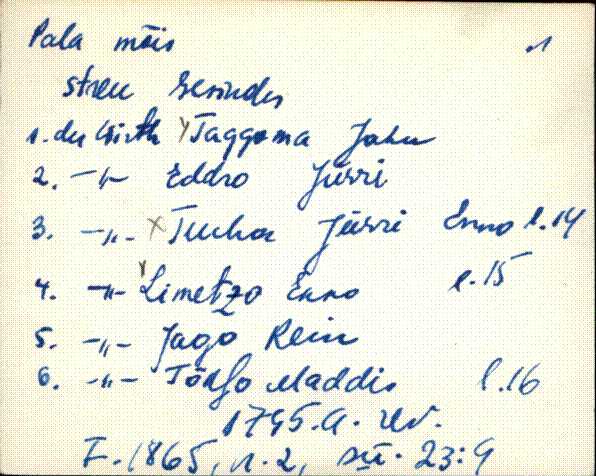 Pala mõis 1
streu Gesinder
1. der Wirth Taggoma Jahn
2. -"- Eddro Jürri
3. -"- x Tucha Jürri Enno l.14
4. -"- Limetzo Enno l.15
5. -"- Jago Rein
6. -"- Maddis l.16
1795.a. rev.
F.1865, n.2, sü. 23:9